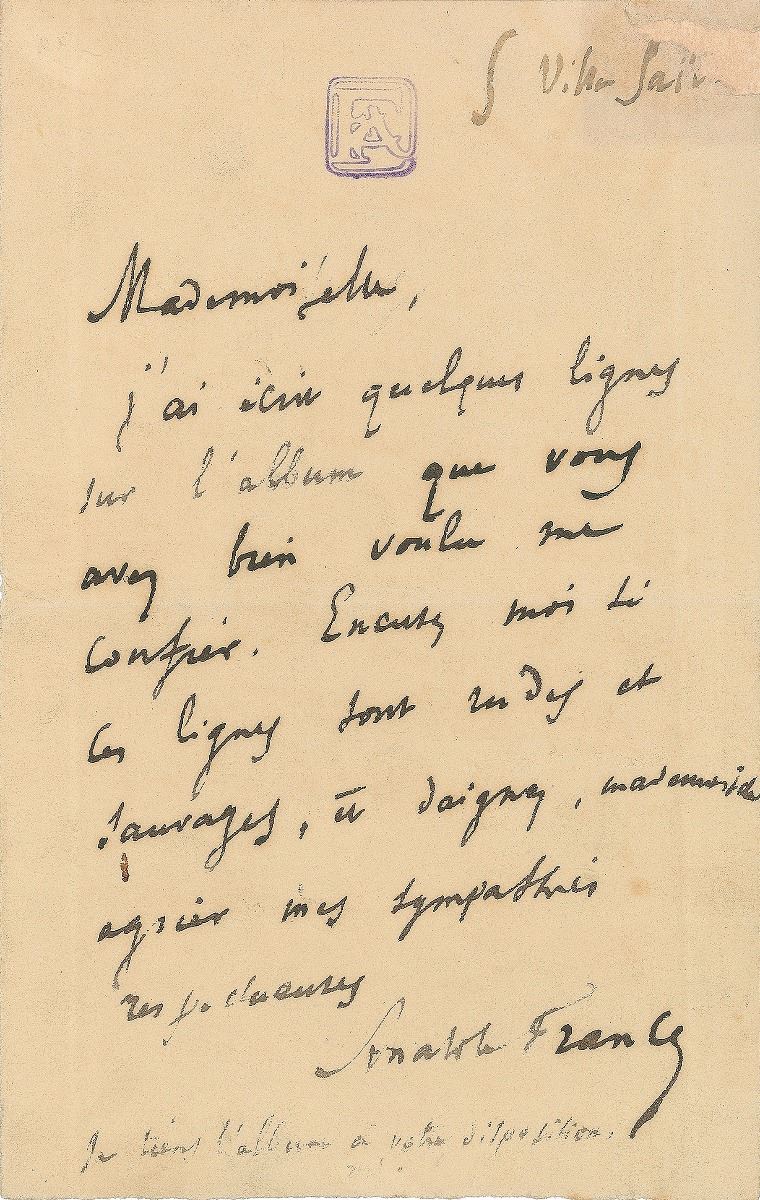 5 Villa Saïd
Mademoiselle,
j'ai écrit quelques lignes
sur l'album que vous
avez bien voulu me
confier. Excusez moi si
ces lignes sont rudes et
sauvages, et daignez, mademoiselle
agréer mes sympathies
respectueuses
Anatole France
Je tiens l'album à votre disposition.